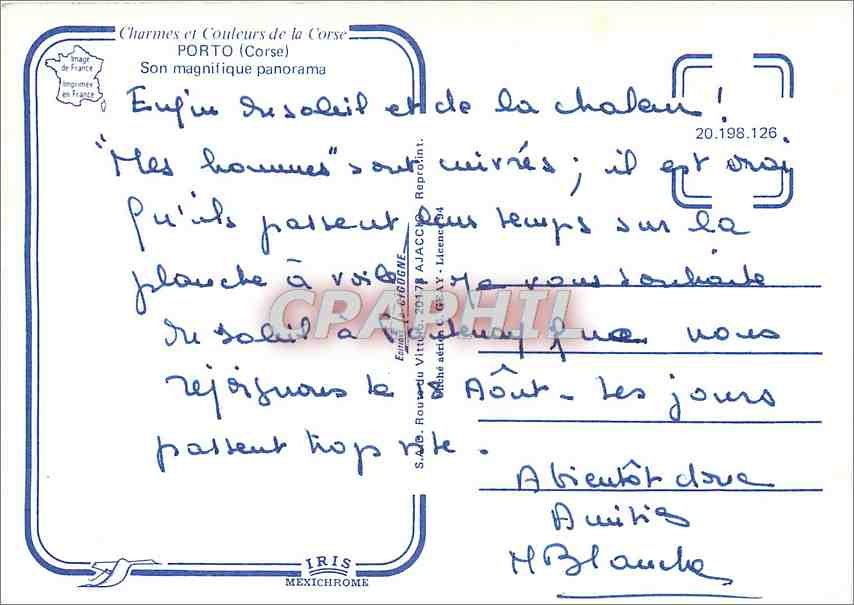 Charmes et Couleurs de la Corse
PORTO (Corse)
Son magnifique panorama
Image
de France
Imprimée
en France
20.198.126
Enfin du soleil et de la chaleur !
"Mes hommes" sont cuivrés ; il est vrai
qu'ils passent leur temps sur la
planche à voile. Je vous souhaite
du soleil à que nous
rejoignons le Août - Les jours
passent trop vite.
A bientôt donc
Amitiés
M Blanche
Editions "La CIGOGNE"
S.A.R. Route du Vittulo, 20178 AJACCIO - Reprod. int.
Cliché aérien C. GEAY - Licence 94
CPAPHIL
IRIS
MEXICHROME